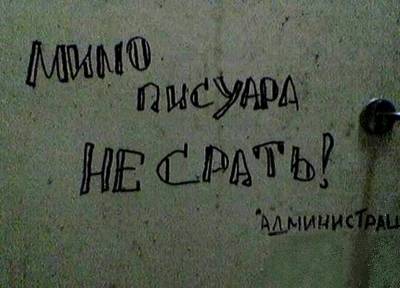 МИМО
ПИСУАРА
НЕ СРАТЬ!
"АДМИНИСТРАЦ